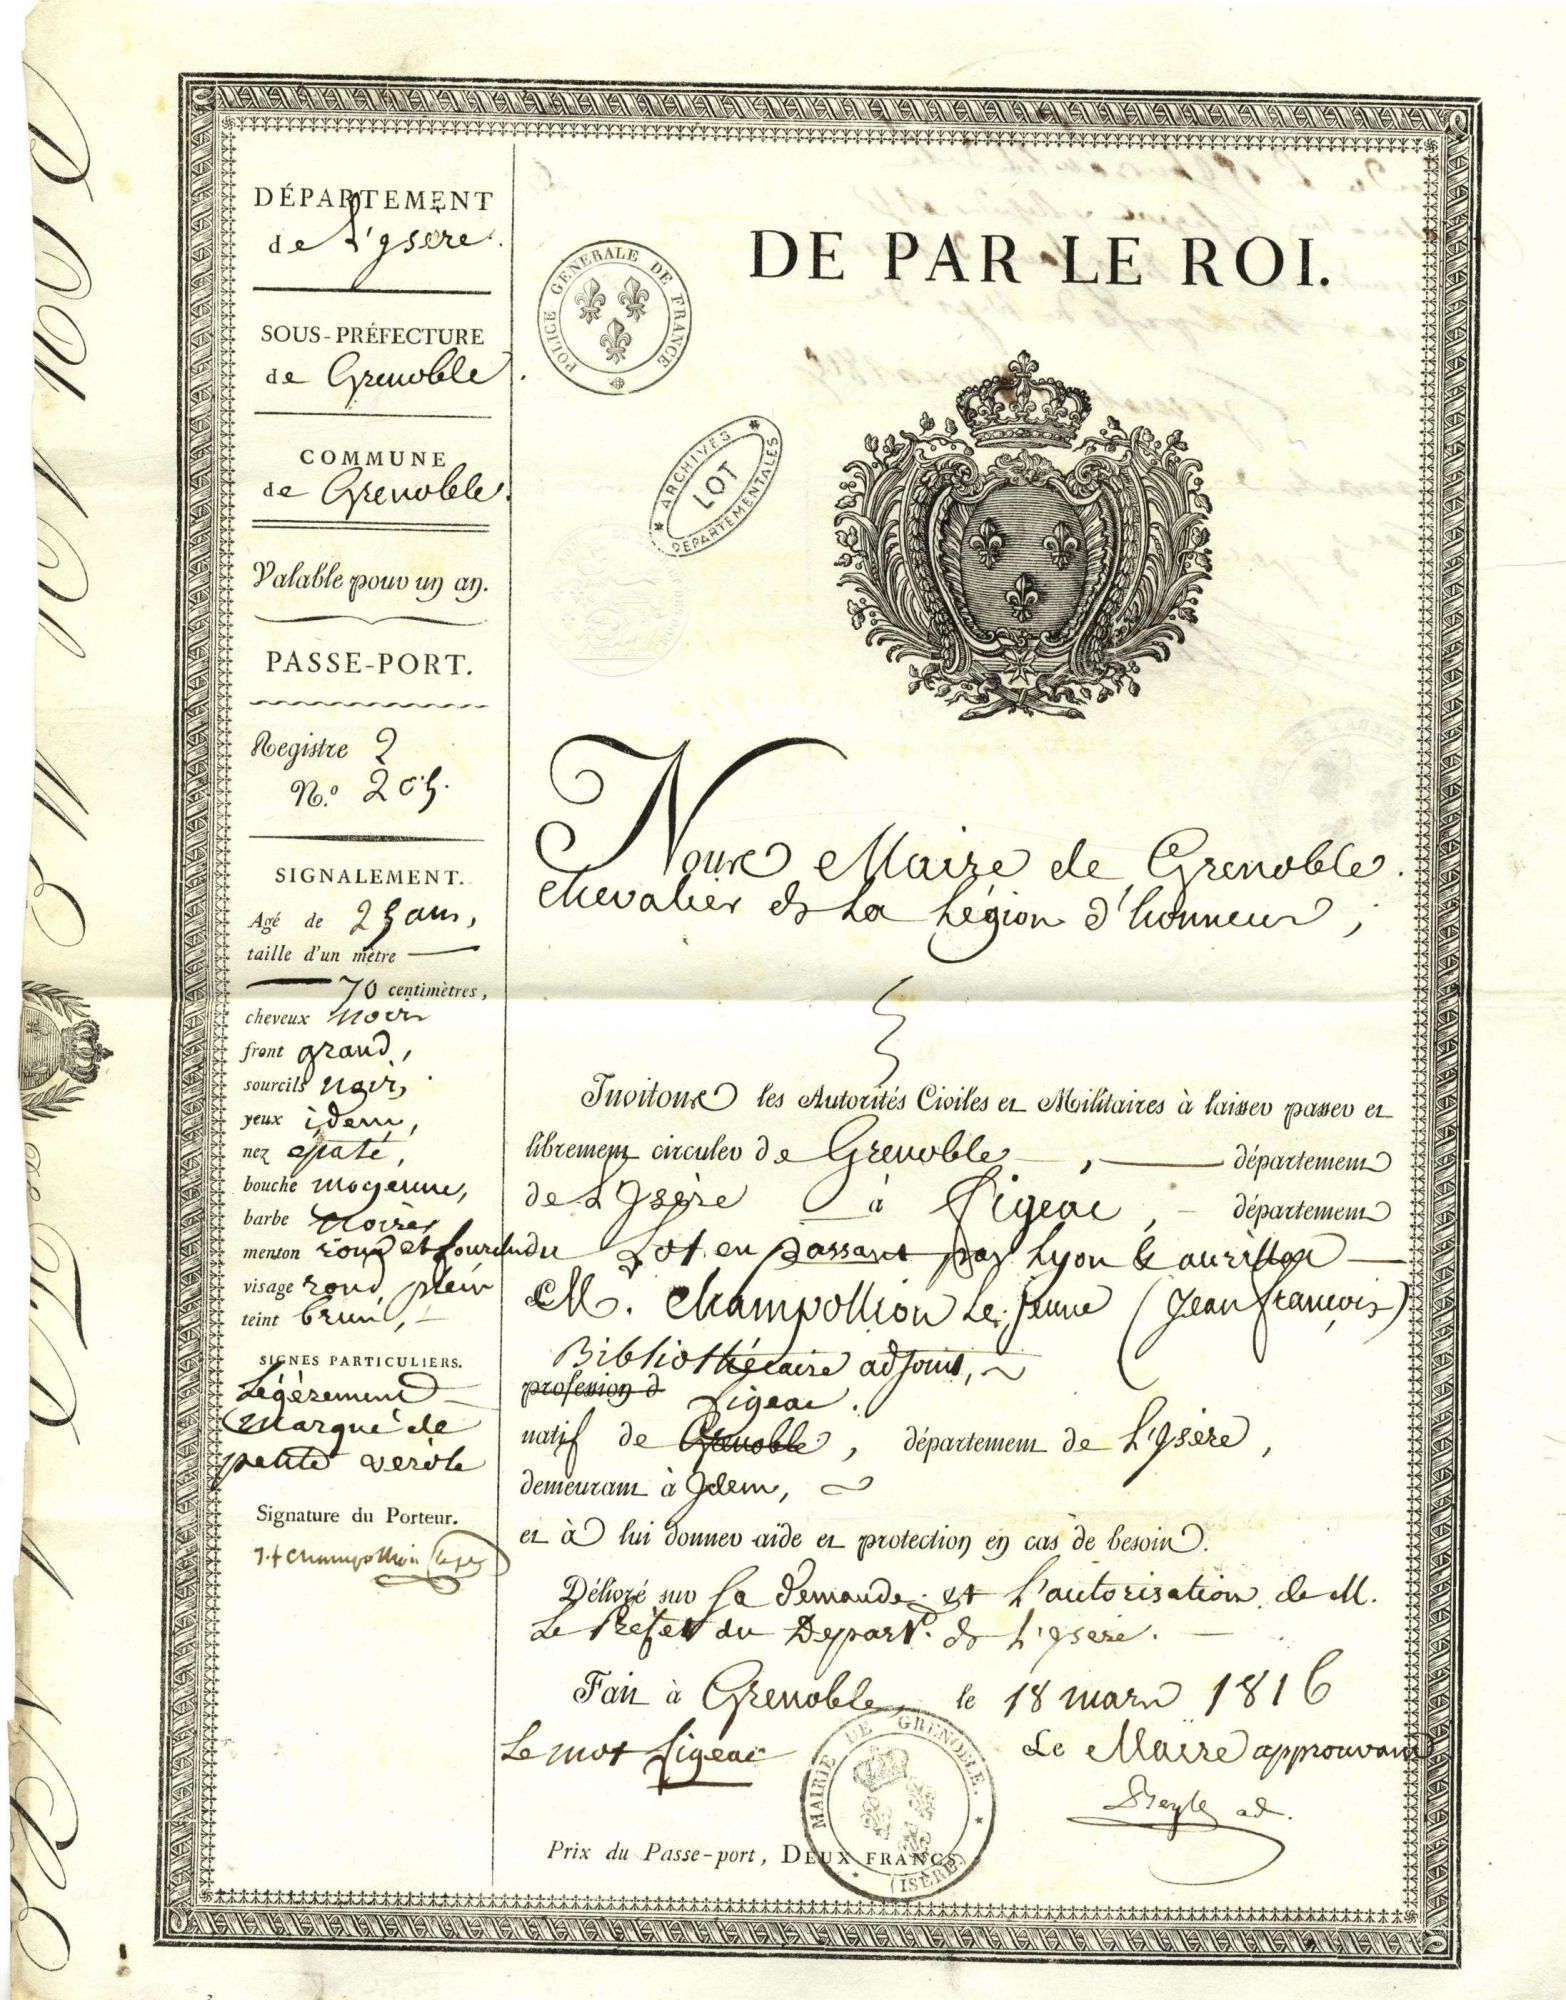 DÉPARTEMENT
de L'Ysère.
SOUS-PRÉFECTURE
de Grenoble.
COMMUNE
de Grenoble.
Valable pour un an.
PASSE-PORT.
Registre 2
N.º 205.
SIGNALEMENT.
Agé de 25 ans,
taille d'un mètre
70 centimètres,
cheveux noirs
front grand,
sourcils noirs,
yeux idem,
nez épaté,
bouche moyenne,
barbe noire
menton rond et fourchu
visage rond, plein
teint brun,
SIGNES PARTICULIERS.
Légèrement
marqué de
petite vérole
Signature du Porteur.
J.f Champollion le je
POLICE GENERALE DE FRANCE
ARCHIVES DÉPARTEMENTALES
LOT
DE PAR LE ROI.
Nous Maire de Grenoble.
chevalier de La Légion d'honneur,
Invitons les Autorités Civiles et Militaires à laisser passer et
librement circuler de Grenoble, département
de L'Isère à Figeac, département
du Lot en passant par Lyon & aurillac
M. Champollion Le jeune (Jean françois)
Bibliothécaire adjoint,
profession d
Figeac.
natif de Grenoble, département de L'Ysère,
demeurant à Idem,
et à lui donner aide et protection en cas de besoin.
Délivré sur Sa demande et L'autorisation de M.
Le Préfet du Depart.t de L'Ysere.
Fait à Grenoble, le 18 mars 1816
Le mot Figeac
Le Maire approuvant
Beyle ad.
MAIRIE DE GRENOBLE.
(ISÈRE)
Prix du Passe-port, DEUX FRANCS.